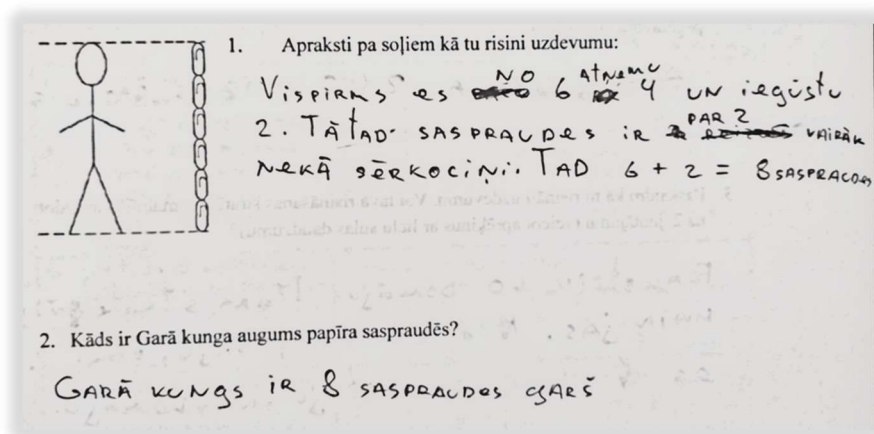 1. Apraksti pa soļiem kā tu risini uzdevumu:
Vispirms es NO 6 atņemu 4 un iegūstu
2. Tātad saspraudes ir PAR 2 vairāk
nekā sērkociņi. Tad 6 + 2 = 8 saspraudes
2. Kāds ir Garā kunga augums papīra saspraudēs?
Garā kungs ir 8 saspraudes garš